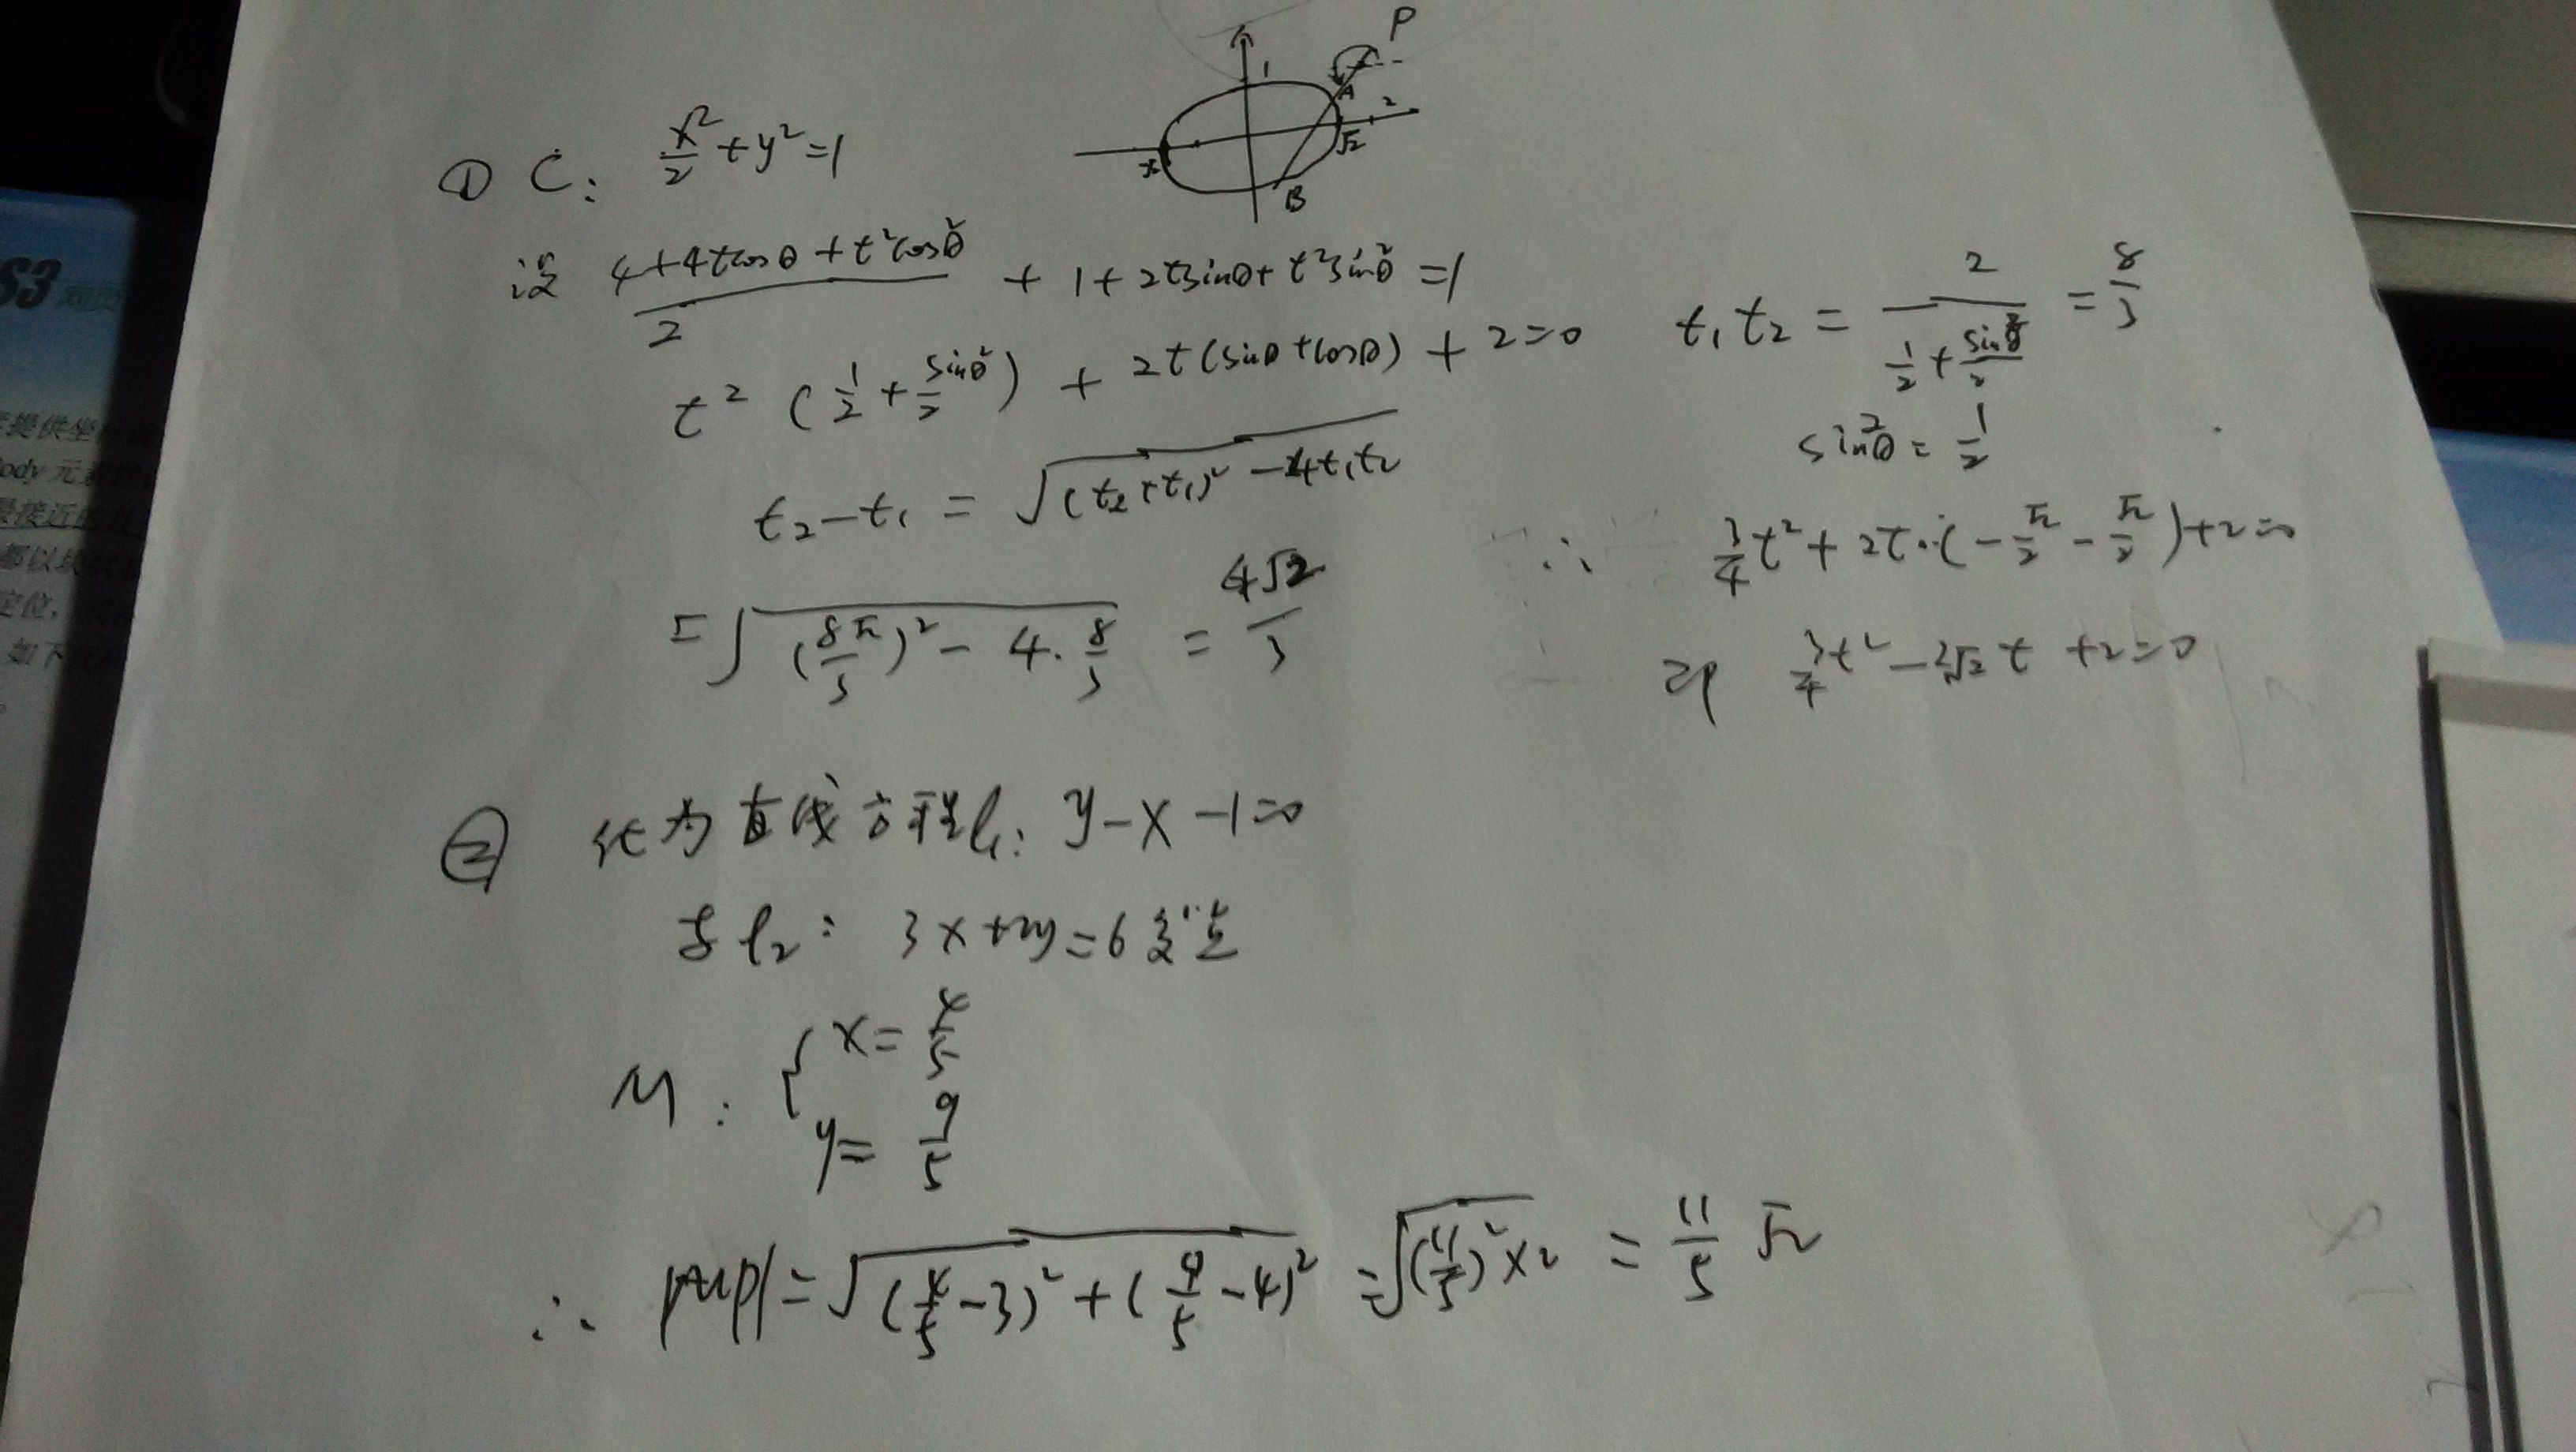 P
1
A
2
√2
x
B
① C: x²/2 + y² = 1
设 (4+4tcosθ+t²cos²θ)/2 + 1+2tsinθ+t²sin²θ = 1
t² (1/2 + sin²θ/2) + 2t(sinθ+cosθ) + 2=0
t₂-t₁ = √((t₂+t₁)² -4t₁t₂)
= √((8√2/3)² - 4·8/3) = 4√2/3
t₁t₂ = 2/(1/2 + sin²θ/2) = 8/3
sin²θ = 1/2
∴ 3/4 t² + 2t·(-√2/2 - √2/2)+2=0
即 3/4 t² - 2√2 t +2=0
② 化为直线方程l₁: y-x-1=0
与l₂: 3x+2y=6交点
M: { x= 4/5
y= 9/5
∴ |MP| = √((4/5-3)² + (9/5-4)²) = √((11/5)²×2) = 11/5 √2
S3
提供坐
ody 元
最接近
都以
定位,
如下